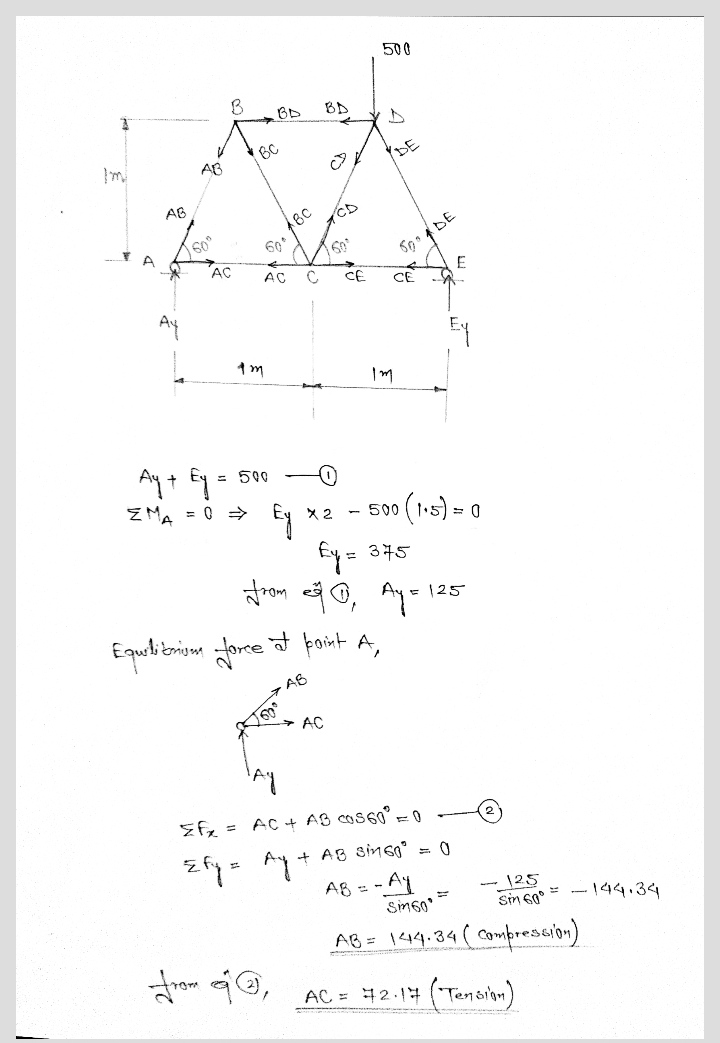 500
B BD BD D
AB BC CD DE
1m
AB BC CD DE
60° 60° 60° 60°
A AC AC C CE CE E
Ay Ey
1m 1m
Ay + Ey = 500 — ①
ΣMA = 0 ⇒ Ey × 2 - 500 (1.5) = 0
Ey = 375
from eq ①, Ay = 125
Equilibrium force at point A,
AB
60°
AC
Ay
ΣFx = AC + AB cos60° = 0 — ②
Σfy = Ay + AB sin60° = 0
AB = - Ay / sin60° = - 125 / sin60° = - 144.34
AB = 144.34 (compression)
from eq ②, AC = 72.17 (Tension)